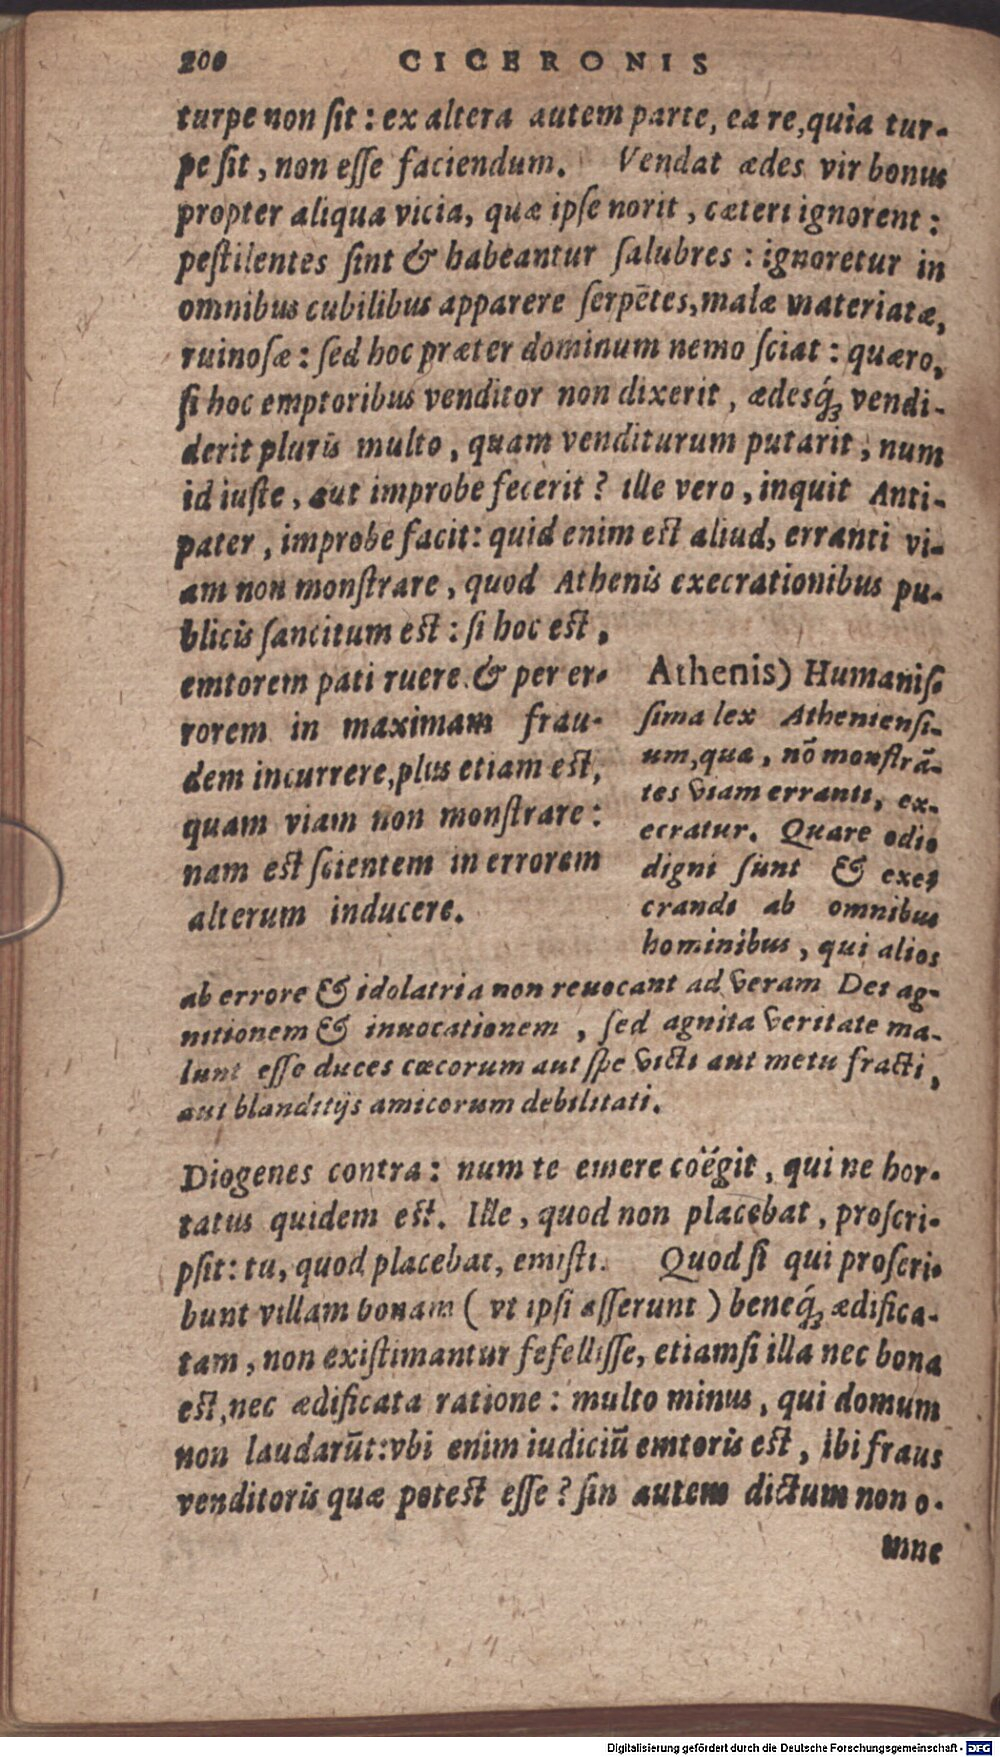 200 CICERONIS
turpe non ſit : ex altera autem parte, ea re, quia tur-
pe ſit, non eſſe faciendum. Vendat ædes vir bonus
propter aliqua vicia, quæ ipſe norit, cæteri ignorent :
peſtilentes ſint & habeantur ſalubres : ignoretur in
omnibus cubilibus apparere ſerpētes, malæ materiatæ,
ruinoſæ : ſed hoc præter dominum nemo ſciat : quæro,
ſi hoc emptoribus venditor non dixerit, ædesq́ꝫ vendi-
derit pluris multo, quam venditurum putarit, num
id iuſte, aut improbe fecerit? ille vero, inquit Anti-
pater, improbe facit: quid enim eſt aliud, erranti vi-
am non monſtrare, quod Athenis execrationibus pu-
blicis ſancitum eſt : ſi hoc eſt,
emtorem pati ruere & per er-
rorem in maximam frau-
dem incurrere, plus etiam eſt,
quam viam non monſtrare :
nam eſt ſcientem in errorem
alterum inducere.
Athenis) Humaniſ-
ſima lex Athenienſi-
um, qua, nō monſtrā-
tes viam erranti, ex-
ecratur. Quare odio
digni ſunt & exe-
crandi ab omnibus
hominibus, qui alios
ab errore & idolatria non reuocant ad veram Dei ag-
nitionem & inuocationem, ſed agnita veritate ma-
lunt eſſe duces cœcorum aut ſpe victi aut metu fracti,
aut blanditijs amicorum debilitati.
Diogenes contra : num te emere coëgit, qui ne hor-
tatus quidem eſt. Ille, quod non placebat, proſcri-
pſit : tu, quod placebat, emiſti. Quod ſi qui proſcri-
bunt villam bonam ( vt ipſi aſſerunt ) beneq́ꝫ ædifica-
tam, non exiſtimantur fefelliſſe, etiamſi illa nec bona
eſt, nec ædificata ratione : multo minus, qui domum
non laudarūt : vbi enim iudiciū emtoris eſt, ibi fraus
venditoris quæ poteſt eſſe? ſin autem dictum non o-
mne
Digitalisierung gefördert durch die Deutsche Forschungsgemeinschaft - DFG